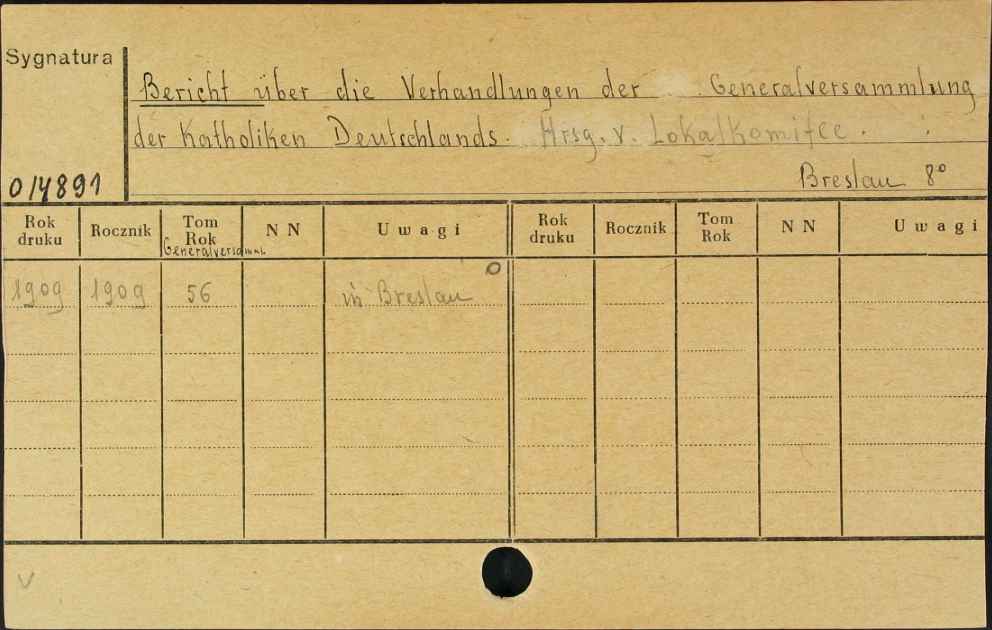 Sygnatura
Bericht über die Verhandlungen der Generalversammlung
der Katholiken Deutschlands. Hrsg. v. Lokalkomitee.
Breslau 8°
014891
Rok druku Rocznik Tom Rok Generalversamml. NN Uwagi Rok druku Rocznik Tom Rok NN Uwagi
1909 1909 56 in Breslau